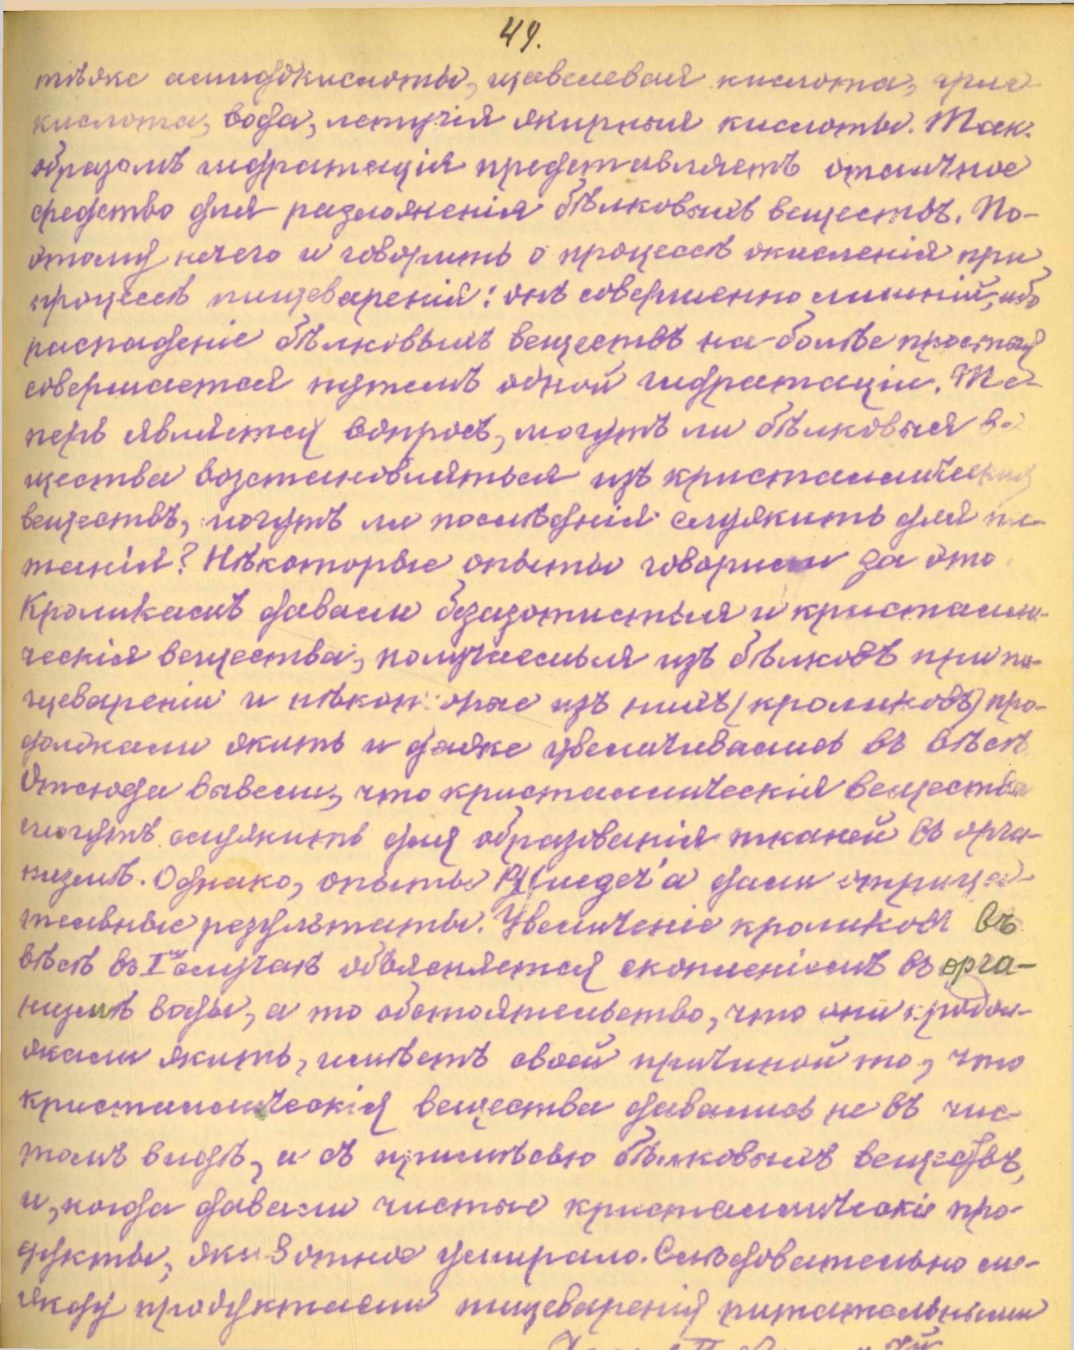 49.
тѣже амидокислоты, щавелевая кислота,
кислота, вода, летучія жирныя кислоты. Так.
образомъ гидратація представляетъ отличное
средство для разложенія бѣлковыхъ веществъ. По-
этому нечего и говорить о процессѣ окисленія при
процессѣ пищеваренія: онъ совершенно лишній, ибо
распаденіе бѣлковыхъ веществъ на болѣе простыя
совершается путемъ одной гидратаціи. Те-
перь является вопросъ, могутъ ли бѣлковыя ве-
щества возстановляться изъ кристаллическихъ
веществъ, могутъ ли послѣднія служить для пи-
танія? Нѣкоторые опыты говорили за это.
Кроликамъ давали безазотистыя и кристалли-
ческія вещества, получаемыя изъ бѣлковъ при пи-
щевареніи и нѣкоторые изъ нихъ (кроликовъ) про-
должали жить и даже увеличивались въ вѣсѣ.
Отсюда вывели, что кристаллическія вещества
могутъ служить для образованія тканей въ орга-
низмѣ. Однако, опыты дали отрица-
тельные результаты. Увеличеніе кроликовъ въ
вѣсѣ въ Iмъ случаѣ объясняется скопленіемъ въ орга-
низмѣ воды, а то обстоятельство, что они продол-
жали жить, имѣетъ своей причиной то, что
кристаллическія вещества давались не въ чис-
томъ видѣ, а съ примѣсью бѣлковыхъ веществъ,
и, когда давали чистые кристаллическіе про-
дукты, животное умирало. Слѣдовательно ме-
жду продуктами пищеваренія питательными